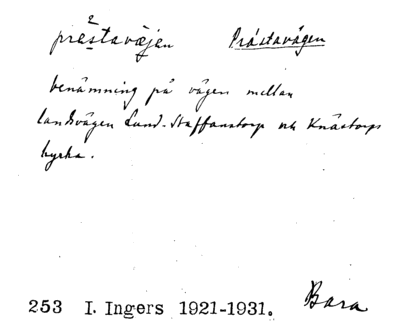 prästavæjen Prästavägen
benämning på vägen mellan
landsvägen Lund-Staffanstorp och Knästorps
kyrka.
253 I. Ingers 1921-1931. Bara